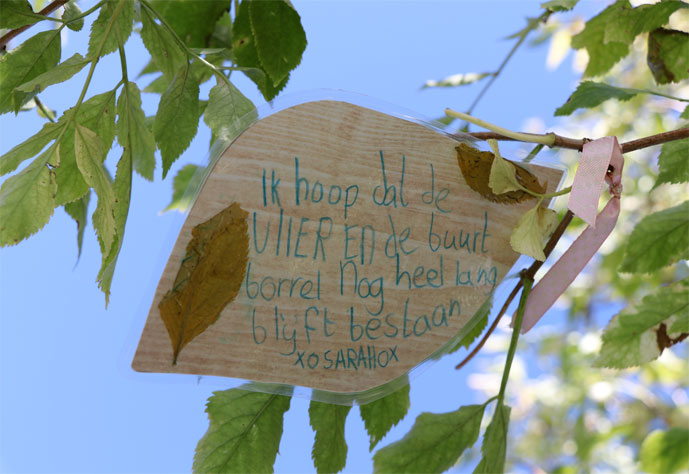 Ik hoop dat de
VlIER EN de buurt
borrel Nog heel lang
blijft bestaan
XO SARAH OX